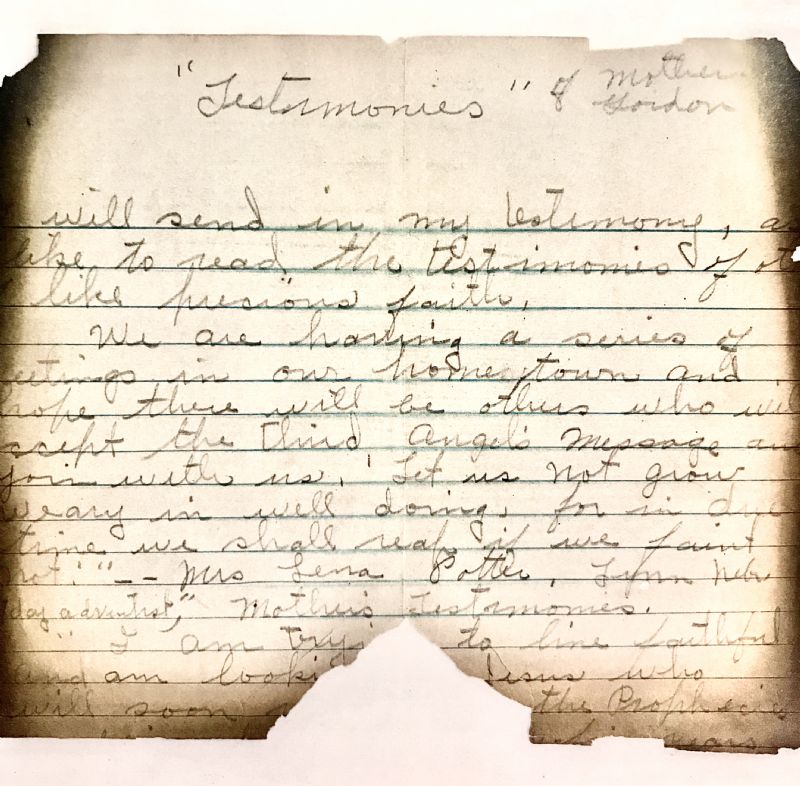 "Testimonies" of Mother
Gordon
will send in my testimony, as
like to read the testimonies of ot
like precious faith.
We are having a series of
eetings in our home town and
hope there will be others who will
accept the Third Angel's Message and
join with us. "Let us not grow
weary in well doing, for in due
time we shall reap if we faint
not." -- Mrs Lena Potter, Lynn Nebr
day adventist," Mother's Testimonies.
"I am tryi to live faithful
and am looki Jesus who
will soon the Prophecies